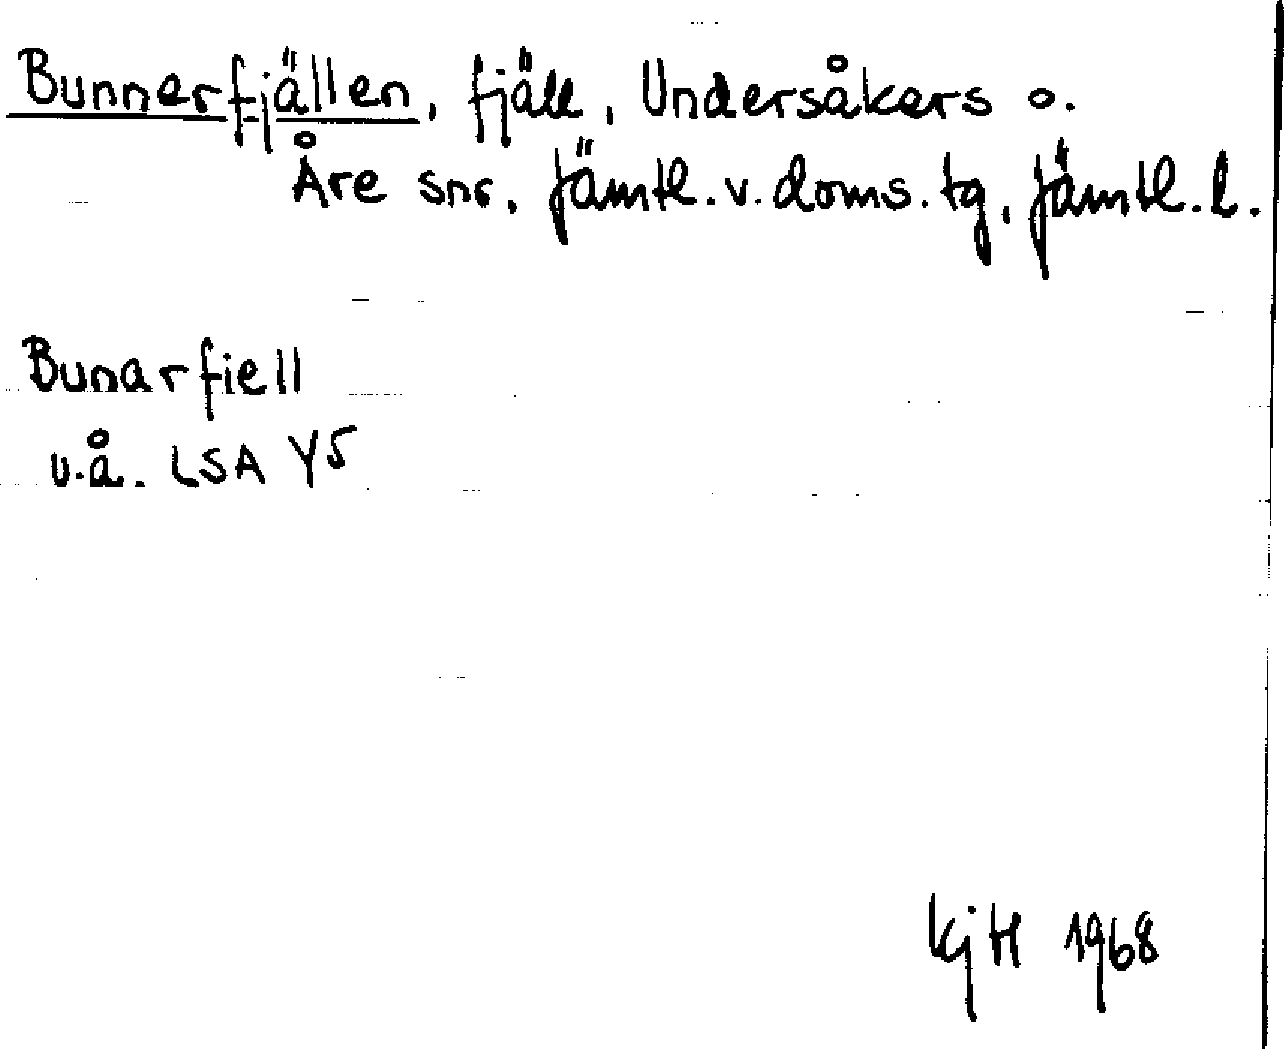 Bunnerfjällen, fjäll, Undersåkers o.
Åre snr, Jämtl.v.doms.tg, Jämtl.l.
Bunarfiell
u.å. LSA Y5
KjH 1968